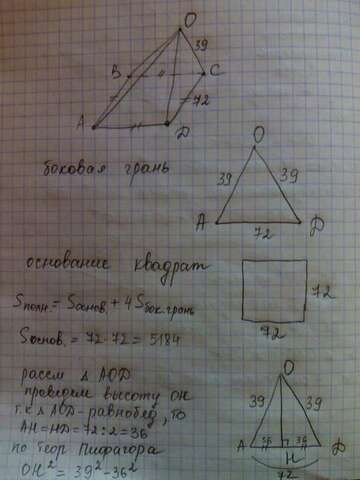 O
39
B
C
72
A
D
боковая грань
O
39
39
A
72
D
основание квадрат
72
72
Sполн. = Sоснов. + 4Sбок.грань
Sоснов. = 72·72 = 5184
рассм Δ AOD
проведём высоту OH
т.к Δ AOD-равнобед, то
AH=HD=72:2=36
по теор Пифагора
OH² = 39²-36²
O
39
39
36
36
A
H
D
72